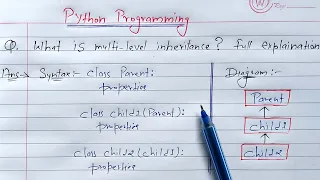 Python Programming
Q. What is multi-level inheritance? full explaination
Ans → Syntax:- class Parent:
properties
class child1(Parent):
properties
class child2(child1):
properties
Diagram:-
Parent
child1
child2